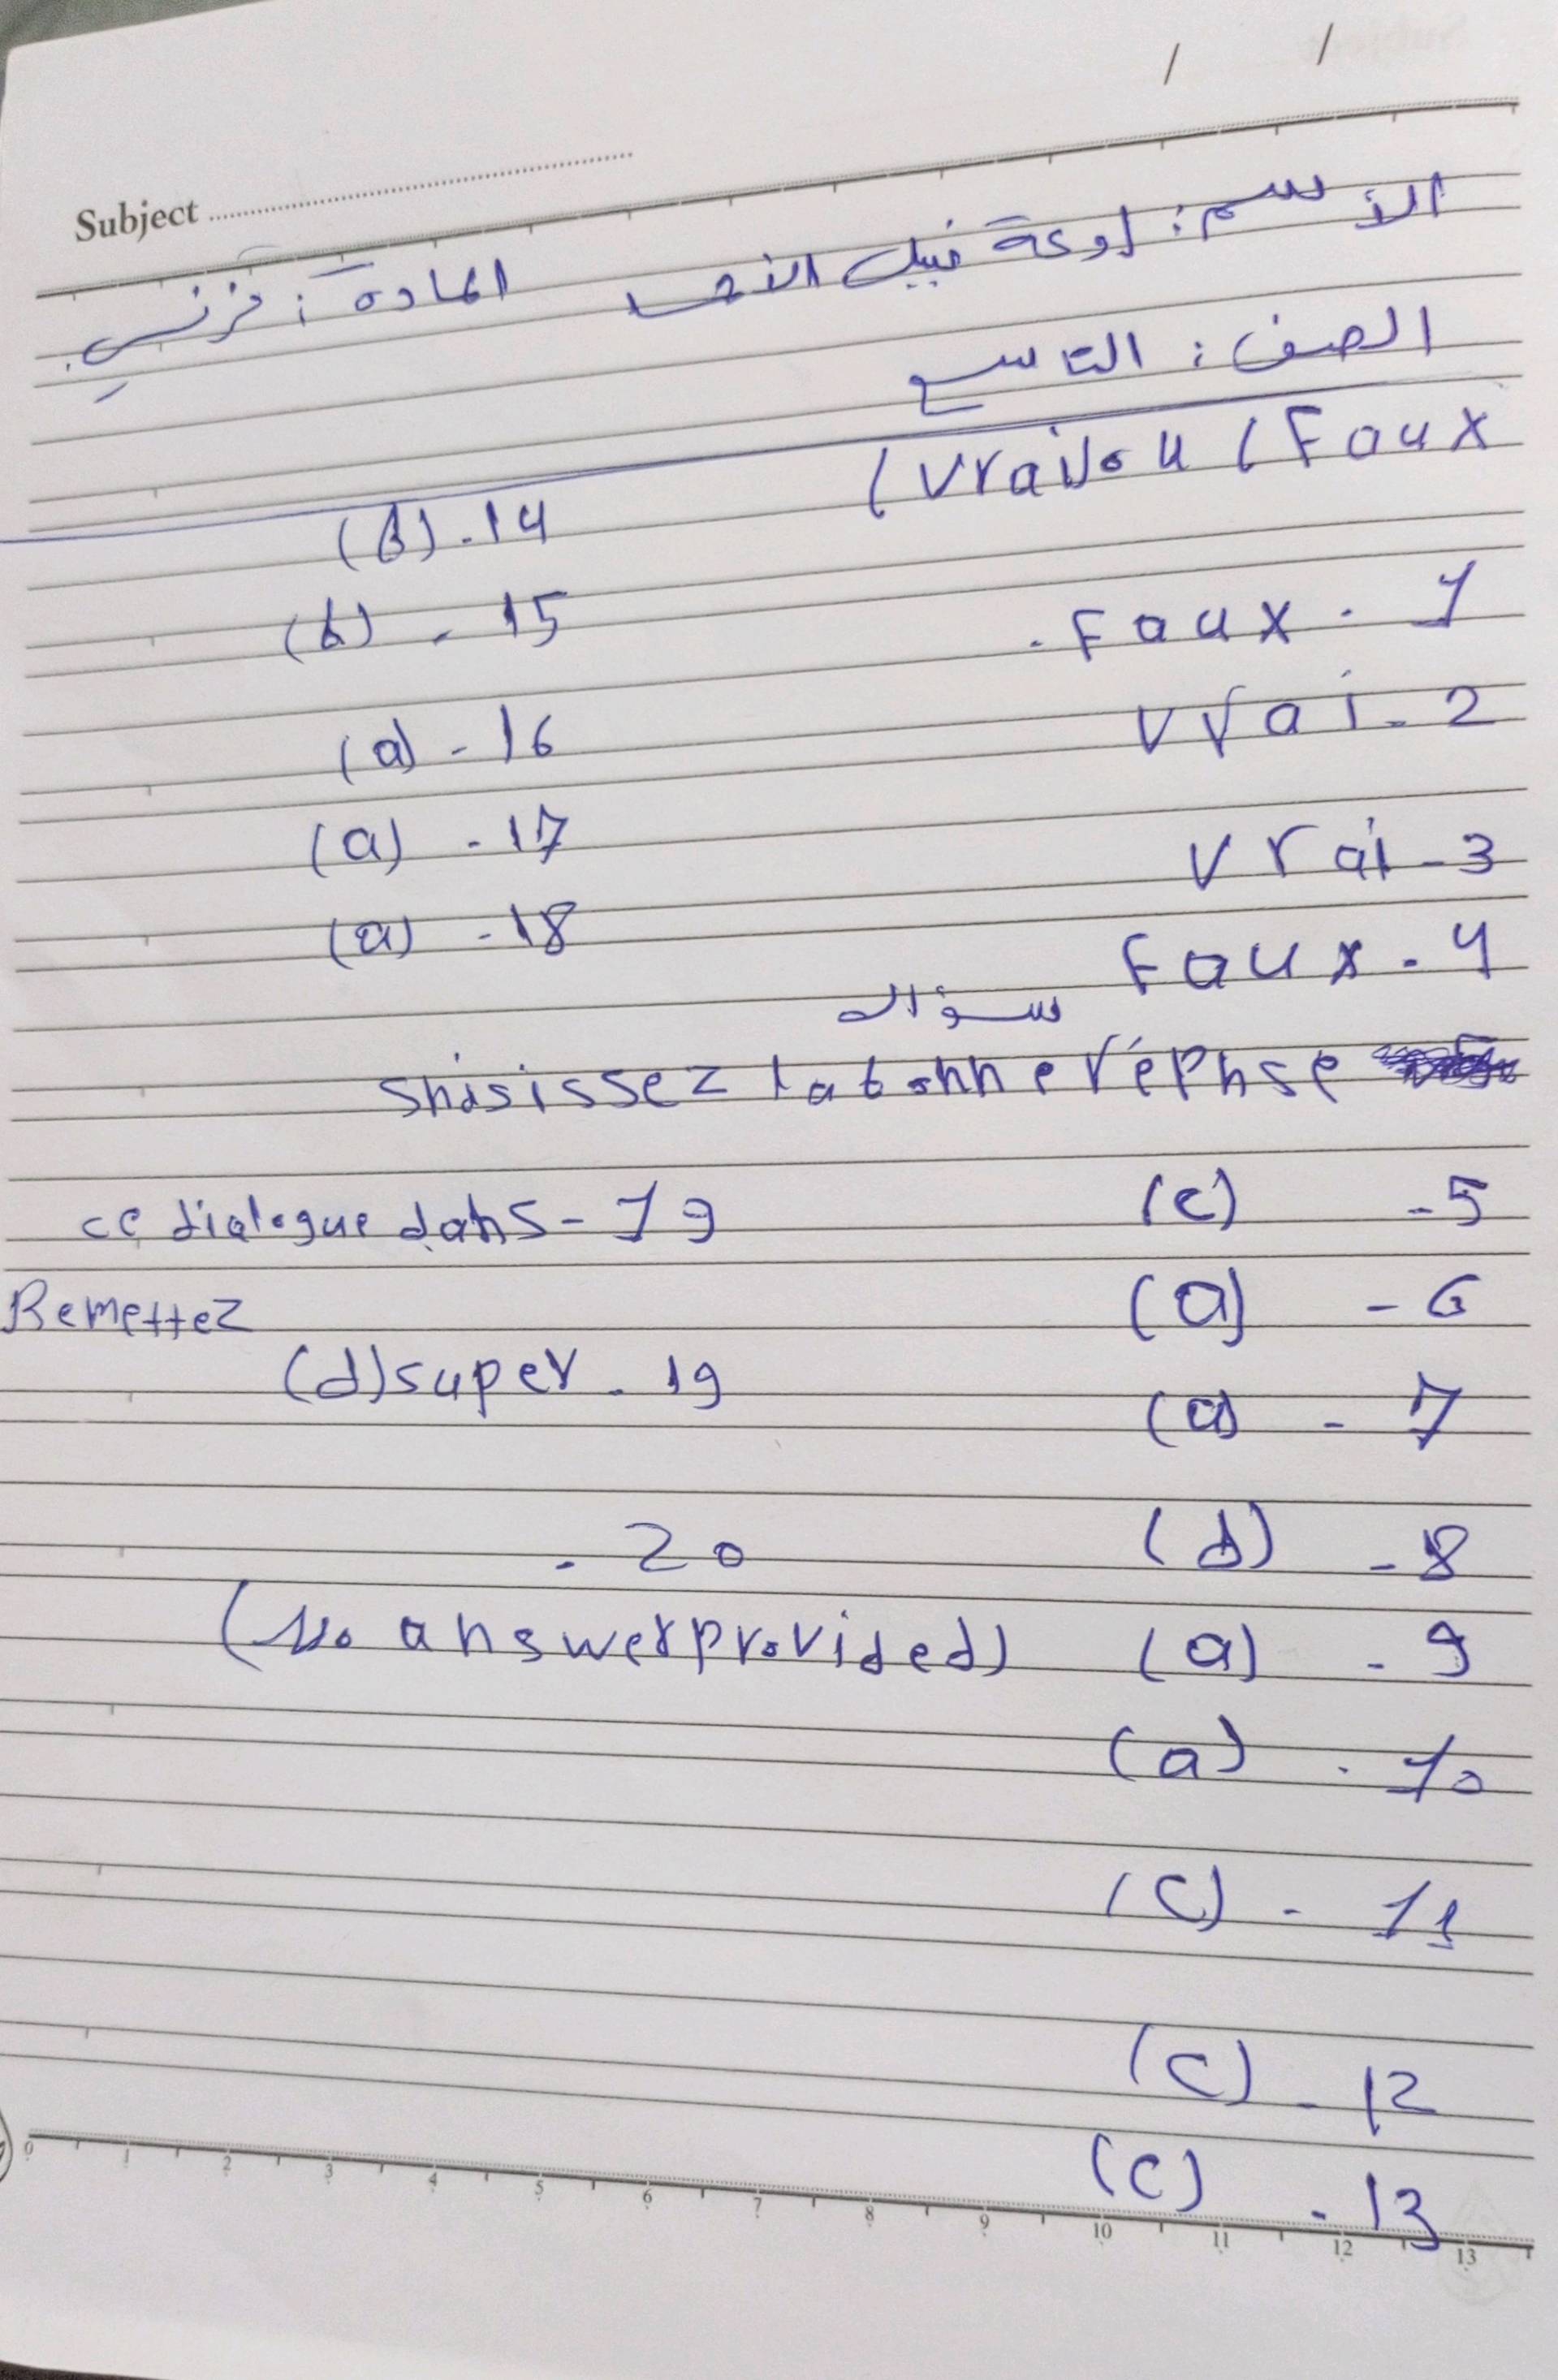 / /
Subject
الأسم: لوعة نبيل الأحمد المادة: فرنسي.
الصف: التاسع
(vrai ou (Faux
1 - Faux.
2 - vrai
3 - vrai
4 - Faux
سؤال
shisissez la bonne réphse
5 - (c)
6 - (a)
7 - (a)
8 - (d)
9 - (a)
10 - (a)
11 - (c)
12 - (c)
13 - (c)
14 - (b)
15 - (b)
16 - (a)
17 - (a)
18 - (a)
19 - ce dialogue dans
Remettez
19 - (d) super
20 -
(No answer provided)
0 1 2 3 4 5 6 7 8 9 10 11 12 13